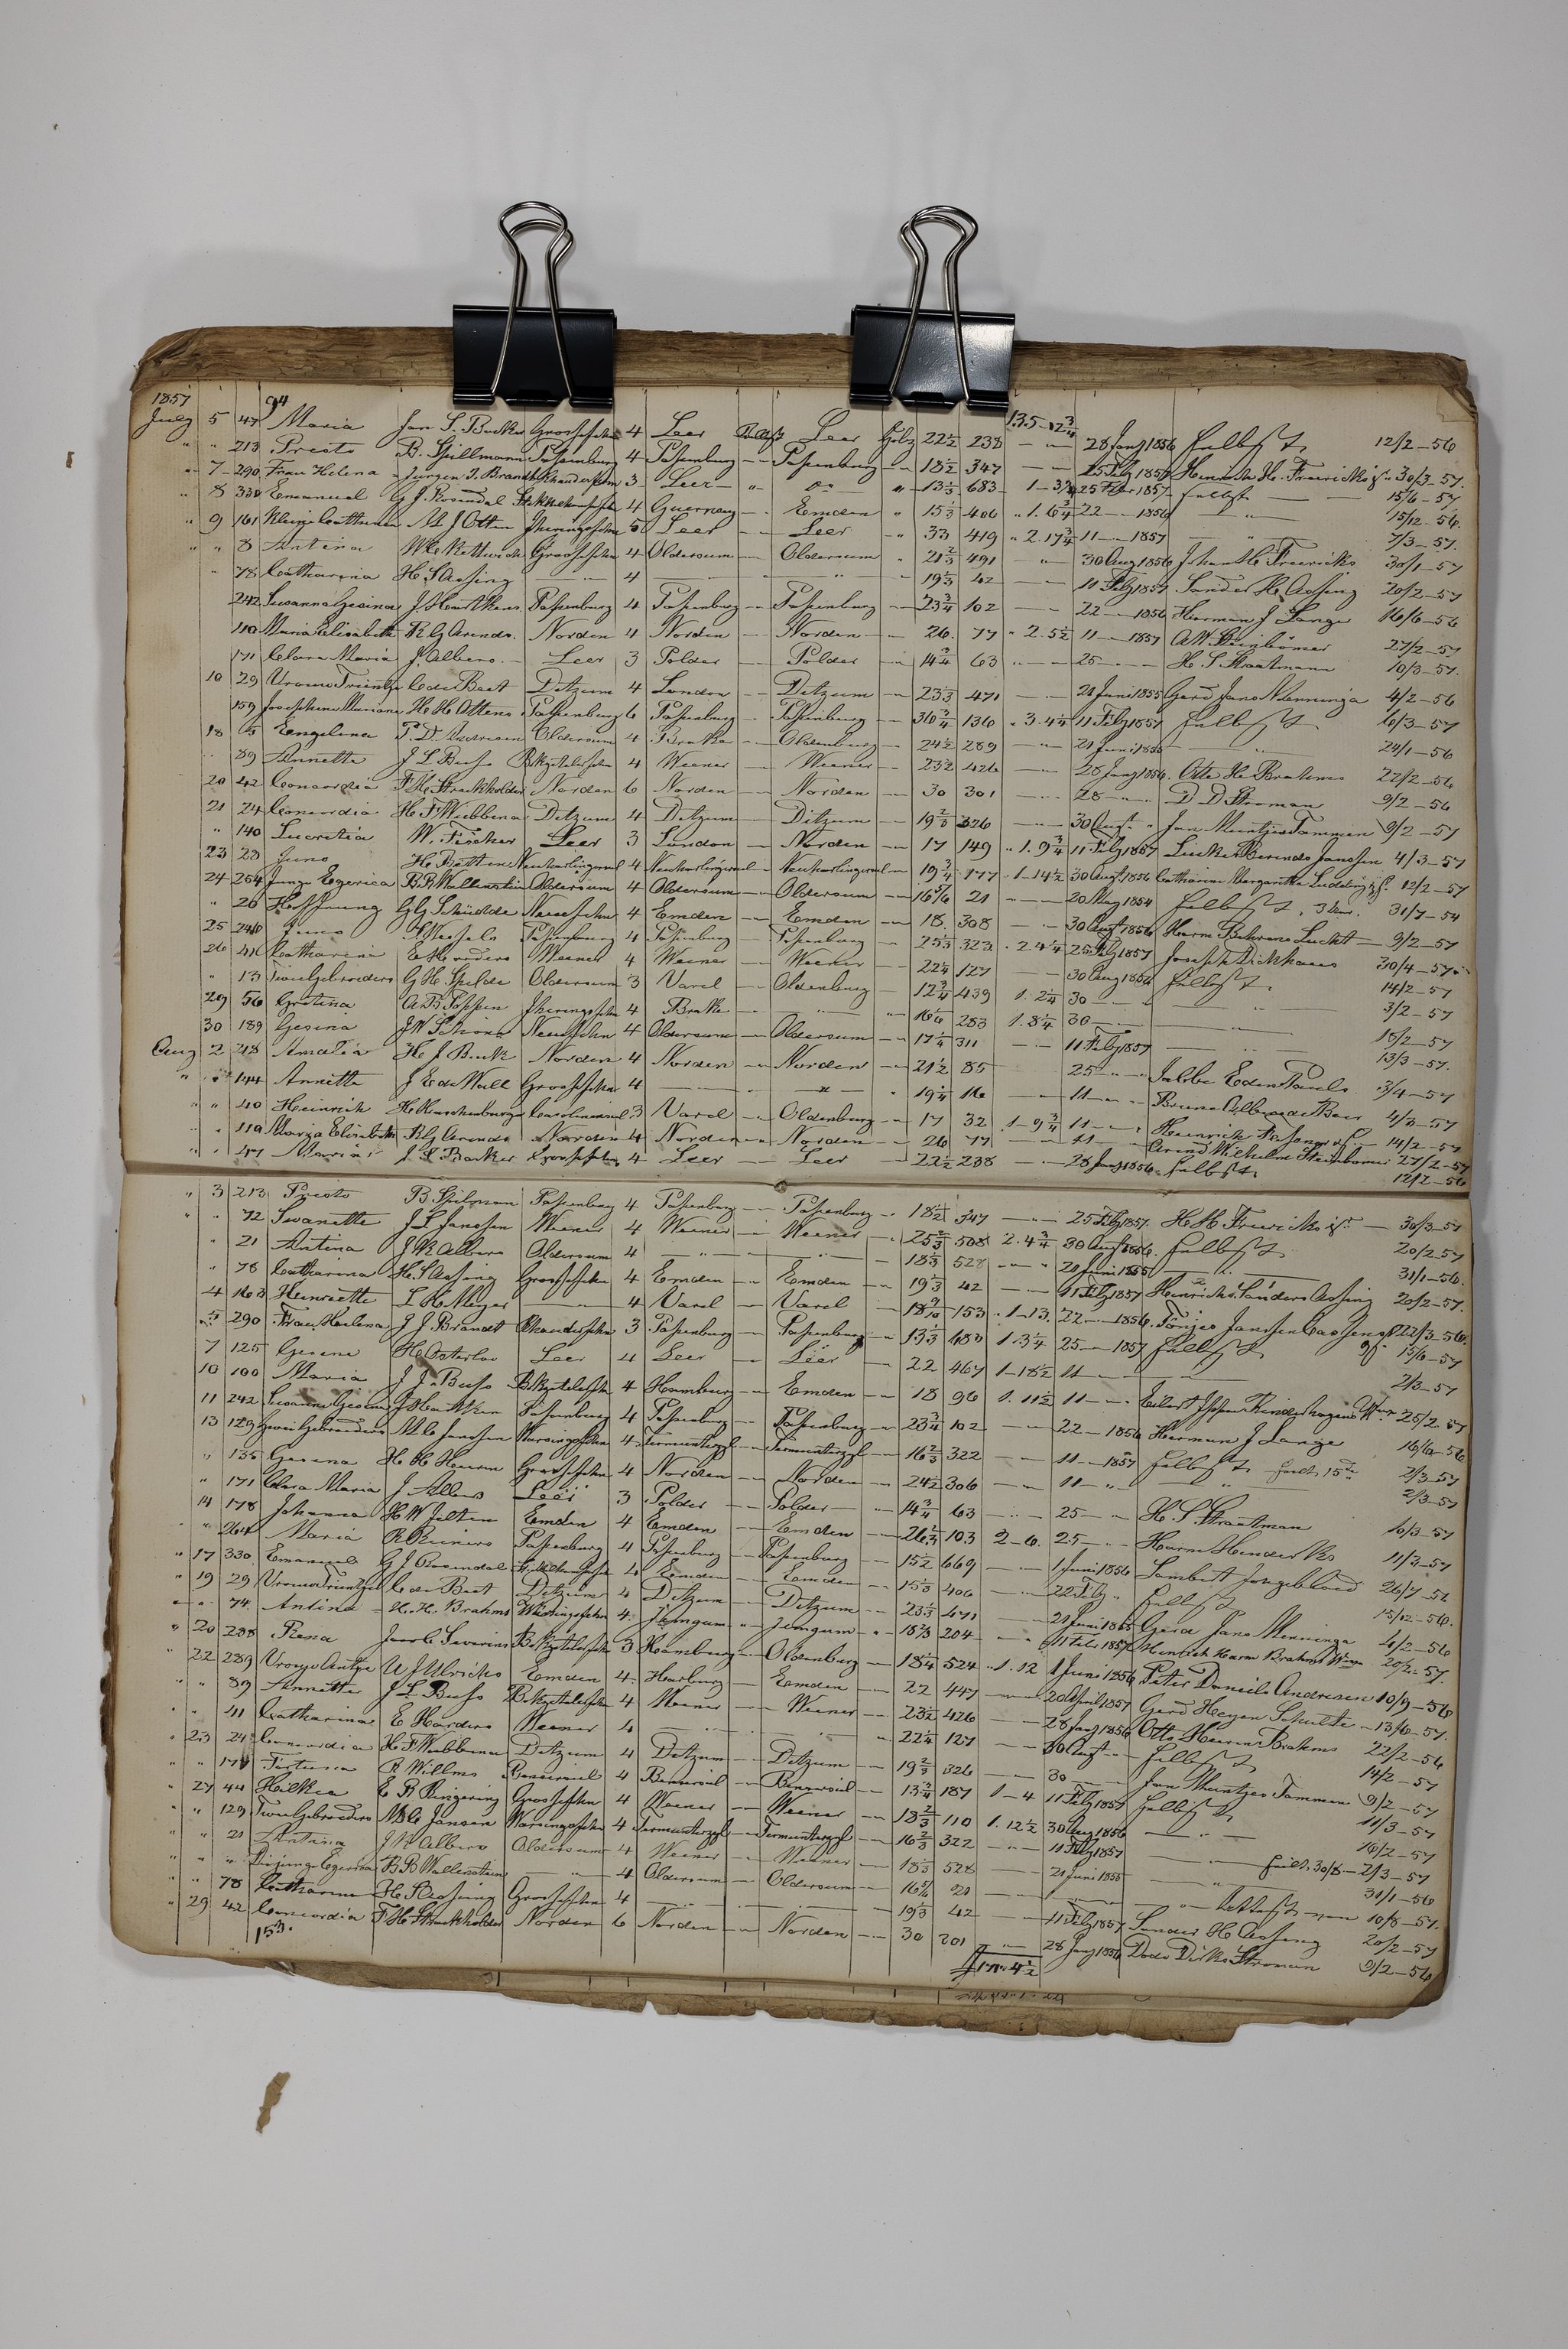 1857 94 135-12 3/4
July 5 47 Maria Jan S. Bucker Grossefehn 4 Leer Ballast Leer Holz 22 1/2 238 — " — 28 Jany 1856 selbst 12/2-56
" " 213 Presto B. Spillmann Papenburg 4 Papenburg — " — Papenburg — " — 18 1/2 347 — " — 25 Feby 1857 Heinrich H. Frerichs jr. 30/3-57.
" 7 290 Frau Helena Jurgen J. Brandt 3 Leer — " do " 13 1/3 683 1-3 3/4 25 Febr 1857 selbst — 15/6-57
" 8 330 Emanuel G J Rosendal 4 Guernsey " Emden " 15 1/3 406 " 1.6 3/4 22 — 1856 — " — 15/12-56.
" 9 161 Klein Catharina M J Otten Jheringsfehn 5 Leer " Leer " 33 419 " 2.17 3/4 11 — 1857 — " — 7/3-57.
" " 8 Antina Grossefehn 4 Oldersum — Oldersum — 21 2/3 491 — " — 30 Aug 1856 Johan H Frerichs 30/1-57
" 78 Catharina H. S Aossing — " — 4 — " — " 19 1/3 42 — " — 11 Feby 1857 Sander H. Aossing 20/2-57
242 Susanna Gesina J. Papenburg 4 Papenburg — Papenburg — 23 3/4 102 — " — 22 — 1856 Herman J Lange 16/6-56
110 Maria Elisabeth R. G Arends. Norden 4 Norden — Norden — 26. 77 " 2.5 1/2 11 — 1857 A W Steinbömer 27/2-57
171 Clara Maria J. Albers. Leer 3 Polder — Polder — 14 3/4 63 " — 25 — " — H. S Straatmann 10/3-57.
10 29 Vrouw Trientje C de Beet Ditzum 4 London — Ditzum — 23 1/3 471 — " 21 Juni 1855 Gerd Jans Menninga 4/2-56
159 Josephine Mariane H. H. Ottens Papenburg 6 Papenburg — Papenburg — 36 1/4 136 " 3.4 1/4 11 Feby 1857 selbst 6/3-57
18 5 Engelina Oldersum 4 Brake — Oldenburg — 24 1/2 289 — " 21 Juni 1855 — " — 24/1-56
89 Annette J L Buss Bokzetelerfehn 4 Weener — Weener — 23 1/2 426 — 28 Jany 1856. Otto H. Brahms 22/2-56
20 42 Concordia F H. Strackholder Norden 6 Norden — Norden — 30 301 — 28 — " — D D Stroman 9/2-56
21 24 Concordia H. F Wubbena Ditzum 4 Ditzum — Ditzum — 19 2/3 326 — " 30 Augt. " Jan Muntjes Tammen 9/2-57
" 140 Lucretia W. Fischer Leer 3 London — Norden — 17 149 " 1.9 3/4 11 Feby 1857 Lucke Berends Janssen 4/3-57
23 23 Juno H. Bettin Neuharlingersiel 4 Neuharlingersiel — Neuharlingersiel — 19 3/4 177 1-14 1/2 30 Augt 1856 Catharina Margaretha 12/2-57
24 254 Junge Egerica B. R Wallenstein Oldersum 4 Oldersum — Oldersum — 16 5/6 21 — " 20 May 1854 selbst, 31/7-54
" 26 Hoffnung Neuefehn 4 Emden — Emden — 18. 308 — " 30 Augt 1856 Harm Behrens Lucht — 9/2-57
25 246 Juno Papenburg 4 Papenburg — Papenburg — 25 1/3 323 " 2 4 1/4 25 Feby 1857 Joseph Dickhaus 30/4-57
26 41 Catharina E Harders Weener 4 Weener — Weener — 22 1/4 127 — " 30 Aug 1856 selbst. 14/2-57
" 13 Twee Gebroeders G H. Spelde Oldersum 3 Varel — Oldenburg — 12 3/4 439 1. 2 1/4 30 — " — 3/2-57
29 56 Gretina A. B. Poppen Jheringsfehn 4 Brake — " 283 1.8 1/4 30 — " — 15/2-57
30 189 Gesina J W Neuefehn 4 Oldersum — Oldersum — 17 1/4 311 — " 11 Feby 1857 — " — 13/3-57.
Aug 2 218 Amalia H. J. Buck Norden 4 Norden — Norden — 21 1/2 85 25 — " — 3/4-57
" " 144 Annette J E de Wall Grossefehn 4 — " " 19 1/4 16 — 11 — " Brune Albers de Boer 4/3-57
" " 40 Heinrich Carolinensiel 3 Varel — Oldenburg — 17 32 1-9 3/4 11 — " Heinrich 14/2-57
" " 110 Maria Elisabeth R. G Arends Norden 4 Norden — Norden — 26 77 — 11 — " Arend Wilhelm Steinbömer 27/2-57
" " 47 Maria J. S. Bucker Grossefehn 4 Leer — Leer — 22 1/2 238 — " 28 Jany 1856 selbst 12/2-56
" 3 213 Presto B. Spilman Papenburg 4 Papenburg — Papenburg — 18 1/2 347 — " 25 Feby 1857. H. H. Frerichs jr. — 30/3-57
" " 72 Swanette J L Janssen Weener 4 Weener — Weener — 25 2/3 508 2.4 3/4 30 Augt 1856. selbst 20/2-57
" 21 Antina J R. Albers Oldersum 4 — " — " — 18 1/3 528 — " 21 Juni 1855 — " — 31/1-56.
" 78 Catharina H. S Aossing Grossefehn 4 Emden — Emden — 19 1/3 42 — 11 Feby 1857 Heinrichs Sanders Aossing 20/2-57.
" 4 163 Henriette L. H. Meyer — " — 4 Varel — Varel — 18 9/10 153 " 1-13. 22 — 1856. Tönjes Janssen 22/3-56.
" 5 290 Frau Helena J J. Brandt 3 Papenburg — Papenburg — 13 1/3 683 1.3 3/4 25 — 1857 selbst 15/6-57
7 125 Gesene H. Osterloo Leer 4 Leer — Leer — 22 467 1-18 1/2 11 — 2/3-57
10 100 Maria J. J. Buss Bokzetelerfehn 4 Hamburg — Emden — 18 96 1. 11 1/2 11 — " — 25/2 57
11 242 Susanna Gesina Papenburg 4 Papenburg — Papenburg — 23 3/4 102 — 22 — 1856 Herman J Lange 16/6-56
13 129 Twee Gebroeders M. C Janssen Warsingsfehn 4 Termunterzyl — Termunterzyl — 16 2/3 322 — 11 — 1857 selbst 2/3-57
" 135 Gesina H. H. Heeren Grossefehn 4 Norden — Norden — 24 1/2 306 — 11 — " — 2/3-57
" 171 Clara Maria J. Albers Leer 3 Polder — Polder — 14 3/4 63 — 25 — " — H. S. Straatman 10/3-57
14 178 Johanna H. W Jelten Emden 4 Emden — Emden — 26 2/3 103 2-6. 25 — " — Harm Henderks 11/3-57
" 264 Maria R. Reiners Papenburg 4 Papenburg — Papenburg — 15 1/2 669 — 1 Juni 1856 Lambert Jongebloed 26/7-56
" 17 330 Emanuel G J Rosendal 4 Emden — Emden — 15 1/3 406 — 22 Feby " selbst 15/12-56.
" 19 29 Vrouw Trientje C de Beet Ditzum 4 Ditzum — Ditzum — 23 1/3 471 — 21 Juni 1855 Gerd Jans Menninga 4/2-56
" " 74. Antina H. H. Brahms Warsingsfehn 4. Jemgum " Jemgum " 18 2/3 204 — " 11 Febr 1857 Hinrich Harm Brahms 20/2-57.
" 20 288 Rena Jacob Severins Bokzetelerfehn 3 Hamburg — Oldenburg — 18 1/4 524 " 1.12 1 Juni 1856 Peter Daniels Andresen 10/9-56
" 22 289 Vrouw Antje U J Ulrichs Emden 4. Harburg — Emden — 22 447 — 20 April 1857 Gerd Heyen Schulte — 13/6-57.
" " 89 Annette J. L. Buss Bokzetelerfehn 4 Weener — Weener — 23 1/2 426 — 28 Jany 1856 Otto Heeren Brahms 22/2-56
" " 41 Catharina E Harders Weener 4 — " — " — 22 1/4 127 — 30 Augt — selbst 14/2-57
" 23 24 Concordia H. F Wubbena Ditzum 4 Ditzum — Ditzum — 19 2/3 326 — 30 — Jan Muntjes Tammen 9/2-57
" " Fortuna R Willms Bensersiel 4 Bensersiel — Bensersiel — 13 3/4 187 1-4 11 Feby 1857 selbst 11/3-57
" 27 44 Hilkea E R Ringering Grossefehn 4 Weener — Weener — 18 2/3 110 1. 12 1/2 30 Aug 1856 — " — 16/2-57
" " 129 Twee Gebroeders M. C Jansen Warsingsfehn 4 Termunterzyl — Termunterzyl — 16 2/3 322 — 11 Feby 1857 — 30/8 — 2/3-57
" " 21 Antina J. R Albers Oldersum 4 Weener — Weener — 18 1/3 528 — 21 Juni 1855 — " — 31/1-56
" " " Die junge Egerica B. R Wallenstein — " — 4 Oldersum — Oldersum — 16 5/6 21 — " 10/8-57.
" " 78 Catharina H. S Aossing Grossefehn 4 — " — 19 1/3 42 — 11 Feby 1857 Sander H. Aossing 20/2-57
" 29 42 Concordia F. H. Strackholder Norden 6 Norden — Norden — 30 301 — " 28 Jany 1856 Dodo Dirks Stroman 9/2-56
153.